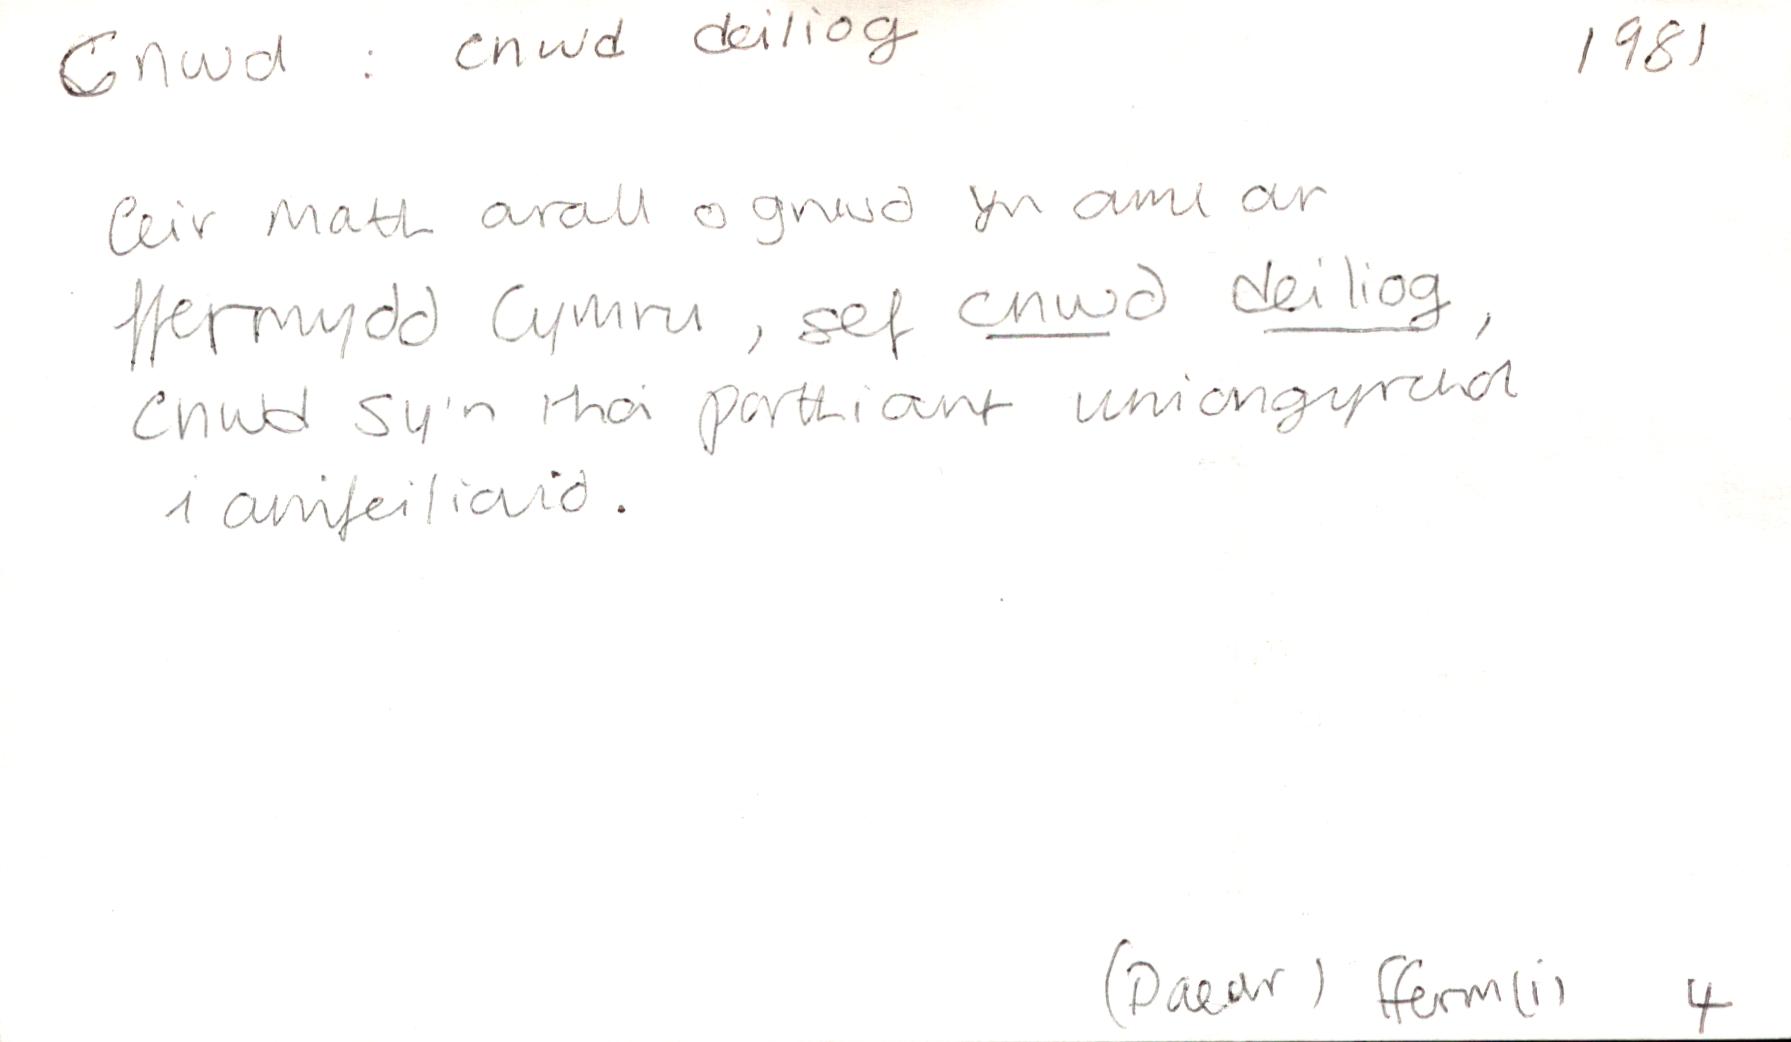 Cnwd : cnwd deiliog 1981
Ceir math arall o gnwd yn aml ar
ffermydd Cymru, sef cnwd deiliog,
cnwd sy'n rhoi porthiant uniongyrchol
i anifeiliaid.
(Daear) fferm(i) 4